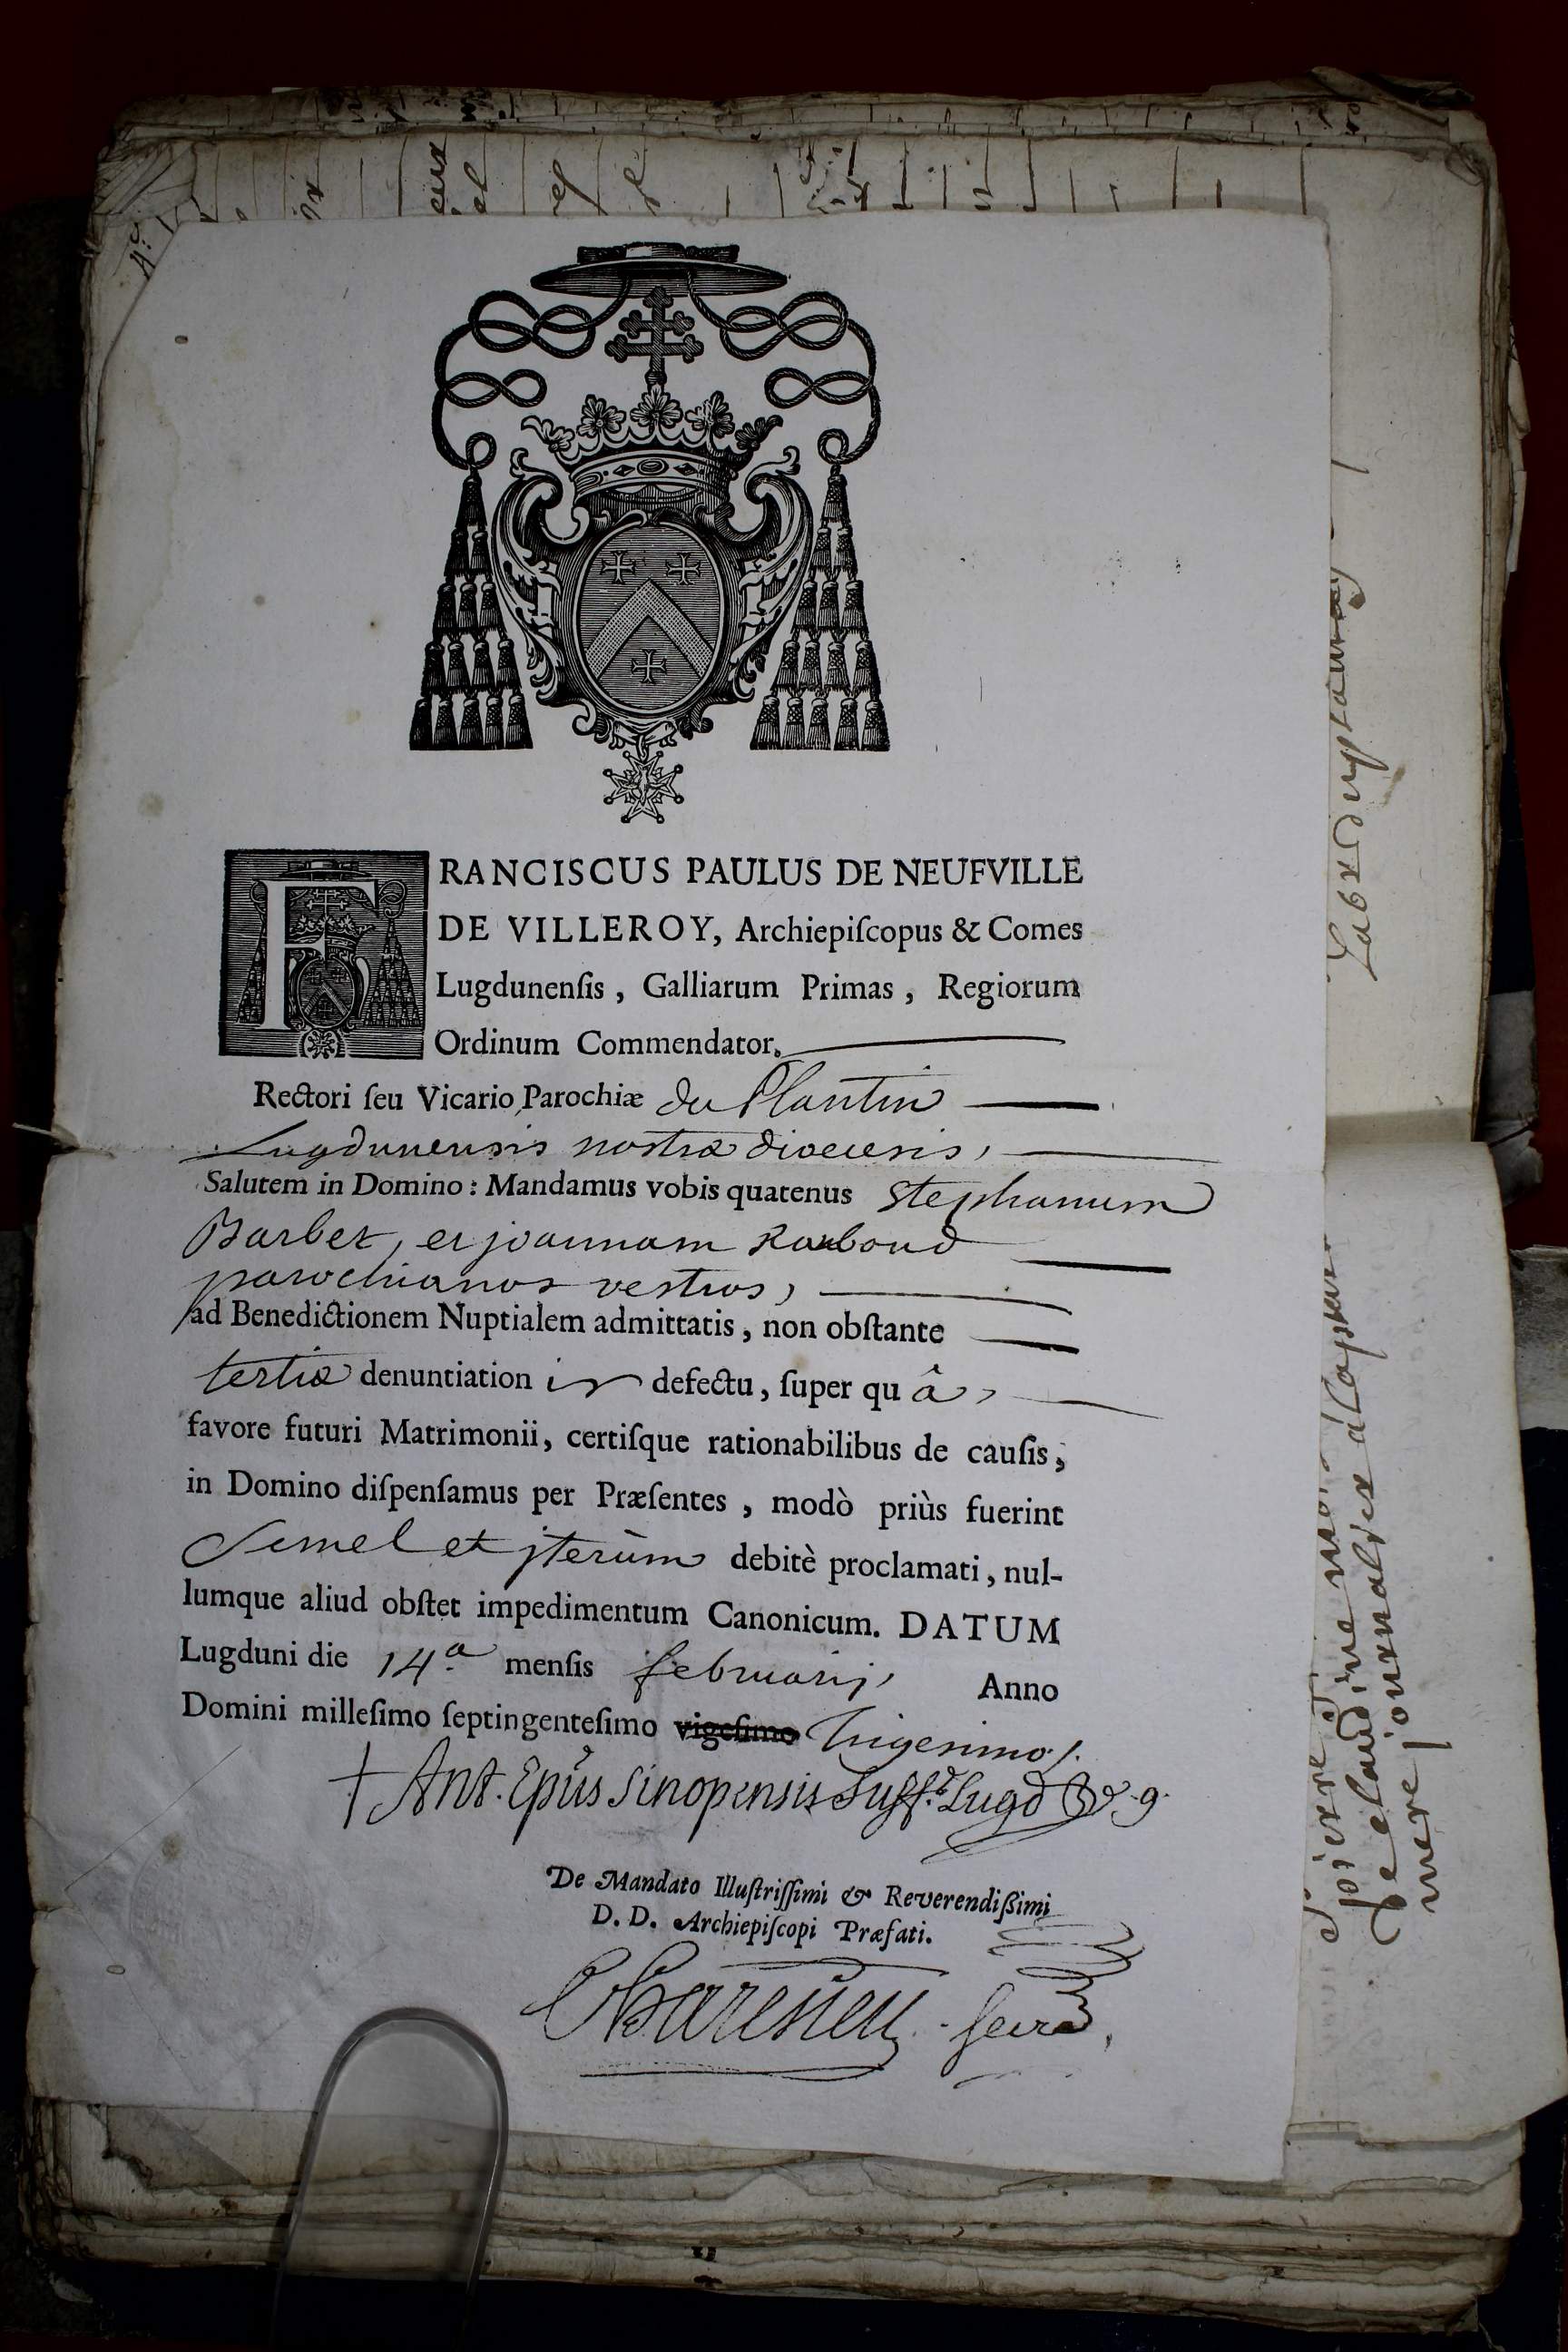 FRANCISCUS PAULUS DE NEUFVILLE
DE VILLEROY, Archiepiſcopus & Comes
Lugdunenſis , Galliarum Primas , Regiorum
Ordinum Commendator.
Rectori ſeu Vicario Parochiæ du Plantin
Lugdunensis nostræ diœcesis,
Salutem in Domino : Mandamus vobis quatenus Stephanum
Barbet, et joannam
parochianos vestros,
ad Benedictionem Nuptialem admittatis , non obſtante
tertiæ denuntiation is defectu, ſuper qu â,
favore futuri Matrimonii, certiſque rationabilibus de cauſis,
in Domino diſpenſamus per Præſentes , modò priùs fuerint
Semel et jterùm debitè proclamati, nul-
lumque aliud obſtet impedimentum Canonicum. DATUM
Lugduni die 14.a menſis februarij, Anno
Domini milleſimo ſeptingenteſimo vigeſimo Trigesimo /.
† Ant. Epũs Sinopensis Suff. Lugd
De Mandato Illuſtriſſimi & Reverendißimi
D. D. Archiepiſcopi Præfati.
Labx
mere
de claudine
journalier